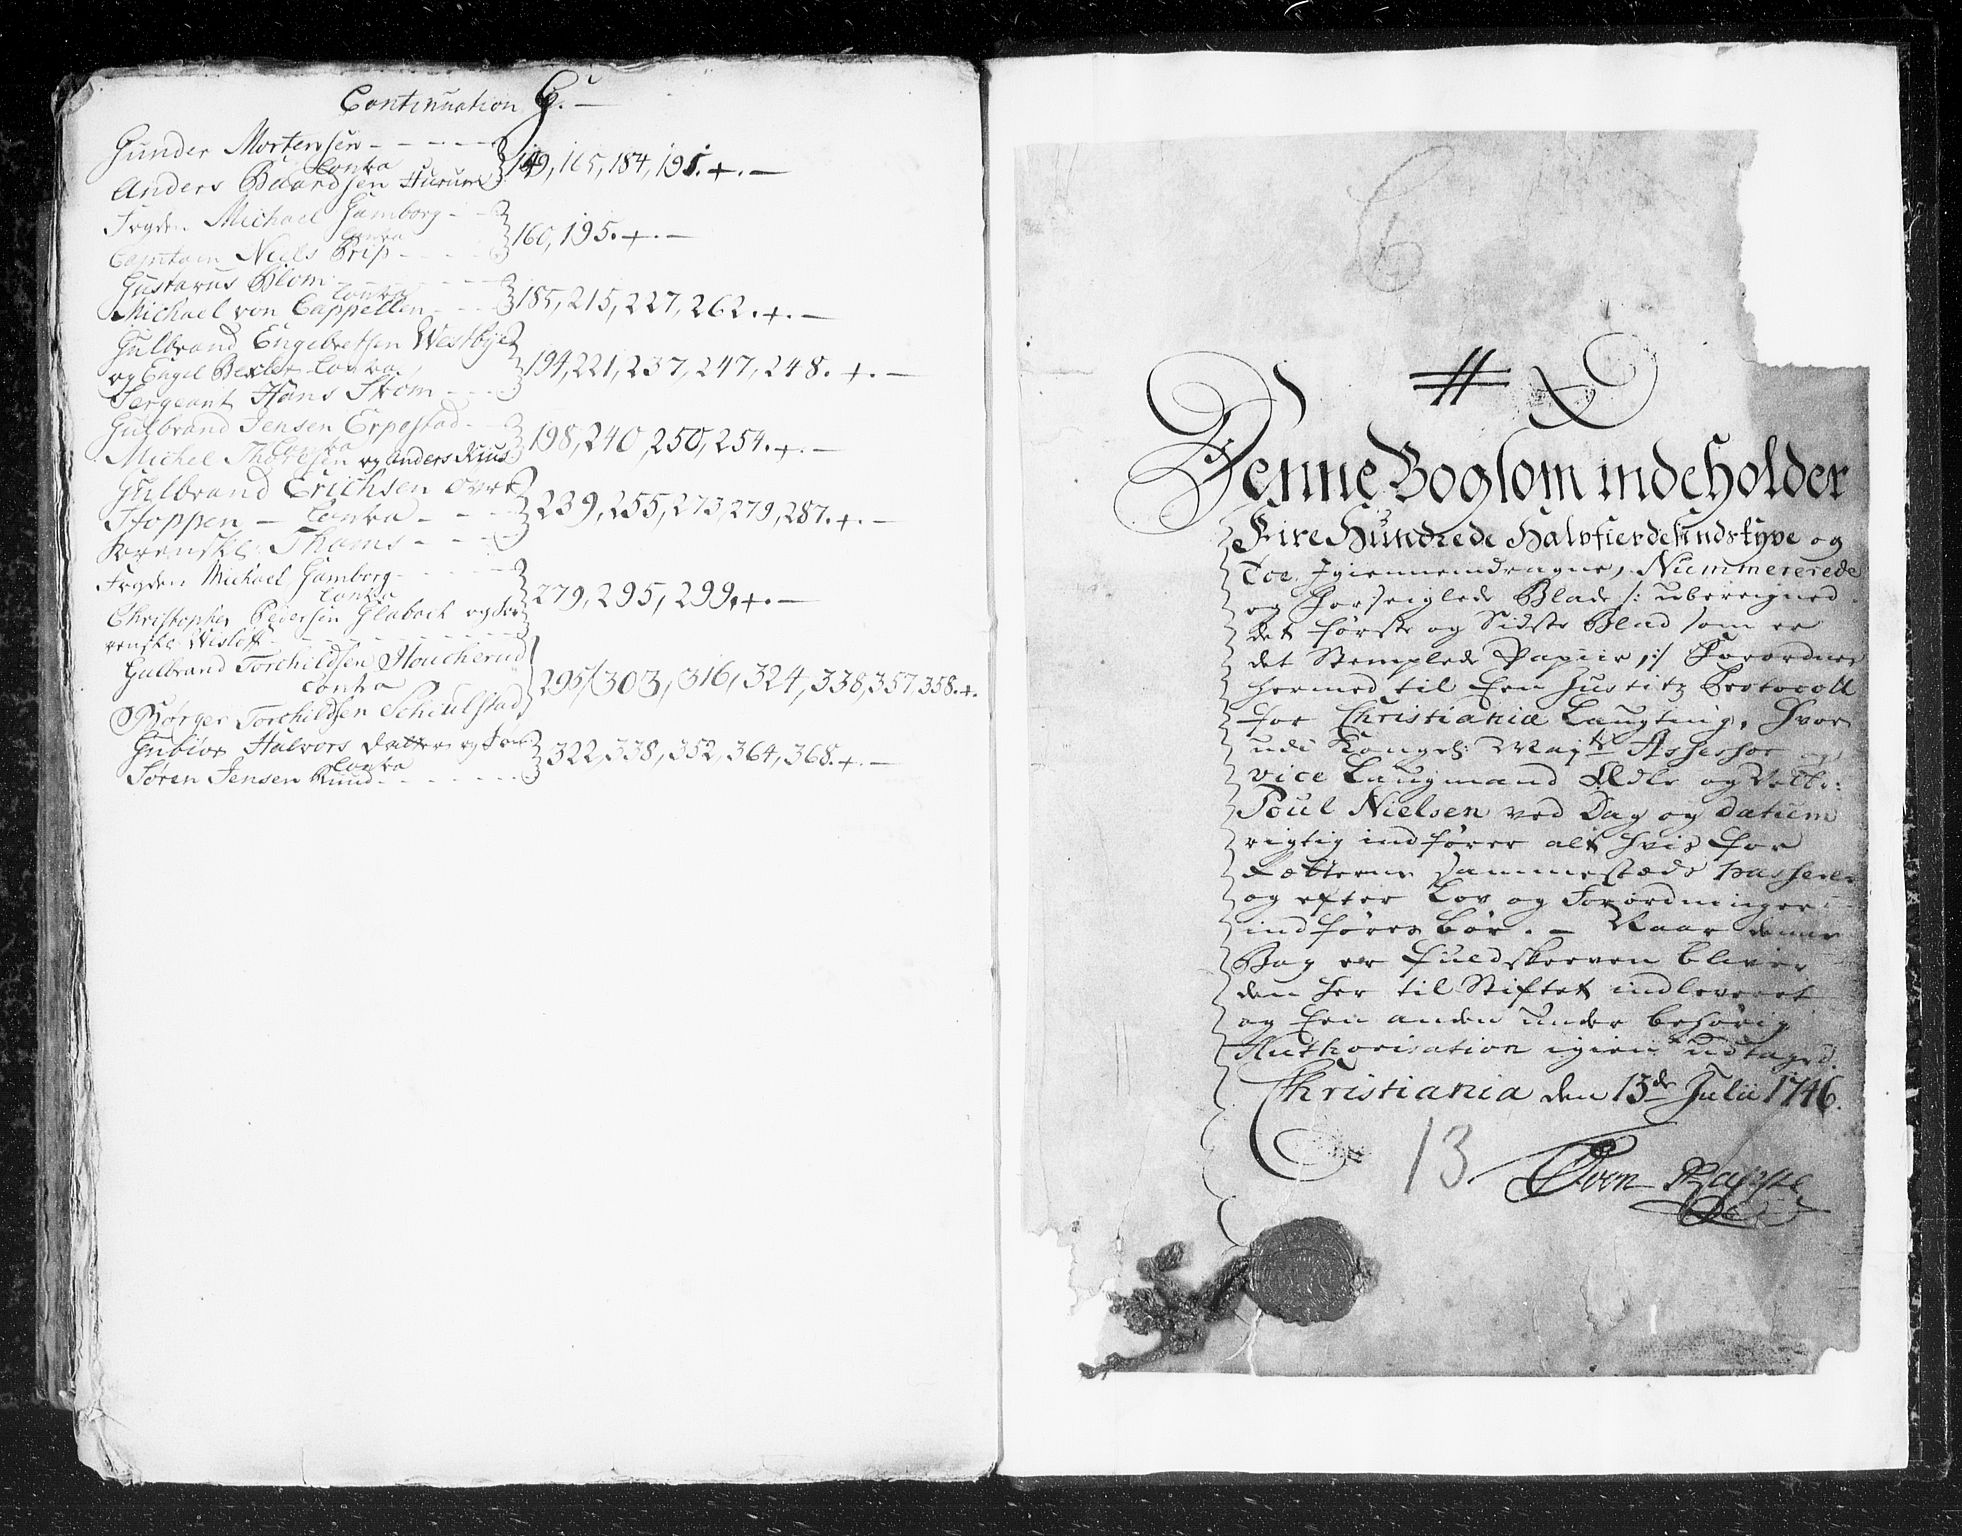 Continuation G. —
Gunder Mortensen - - - - -
Contra
Anders Baardsen Hurum
149, 165, 184, 191. + . —
Fogden Michael Gamborg - -
Contra
Capitain Niels Brip - - - -
160, 195. + . —
Gustavus Blom - - - -
Contra
Michael von Cappellen - - -
185, 215, 227, 262. + . —
Gulbrand Engebretsen Westbye
og Engel Bexler Contra
Sergeant Hans Strom - - -
194, 221, 237, 247, 248. + . —
Gulbrand Jensen Erpestad - -
Contra
Michel Thoresen og Anders Kruus
198, 240, 250, 254. + . —
Gulbrand Erichsen Ovre
Hoppen — Contra - - -
Sorenskr: Thams - - -
239, 255, 273, 279, 287. + . —
Fogden Michael Gamborg - - - -
Contra
Christopher Pedersen Glabech og So
renskr: Wesloff - - - - - -
279, 295, 299. + . —
Gulbrand Torchildsen Houcherud
Contra
Børger Torchildsen Schiulstad
295, 303, 316, 324, 338, 357, 358. + .
Gubiør Halvors Datter og
Contra
Søren Jensen Ruud - - - - -
322, 338, 352, 364, 368. + . —
Denne Bog som indeholder
Fire Hundrede Halvfierdesindstyve og
Toe, Igiennemdragne, Nummererede
og Forseiglede Blade /: ubereigned
det første og Sidste Blad som er
det Stemplede Papiir :/ Forordnes
hermed til Een Justitz Protocoll
for Christianiæ Laugting, Hvor
udi Kongel: Mayts Assessor og
vice Laugmand Ædle og Velb:
Poul Nielsen ved Dag og datum
rigtig indfører alt hvis for
Rætterne sammestæds passerer
og efter Lov og Forordninger
indføres bør. — Naar denne
Bog er fuldskreven bliver
den her til Stiftet indleveret
og Een anden under behørig
Authorisation igien udtaged.
Christiania den 13de Julii 1746.
13